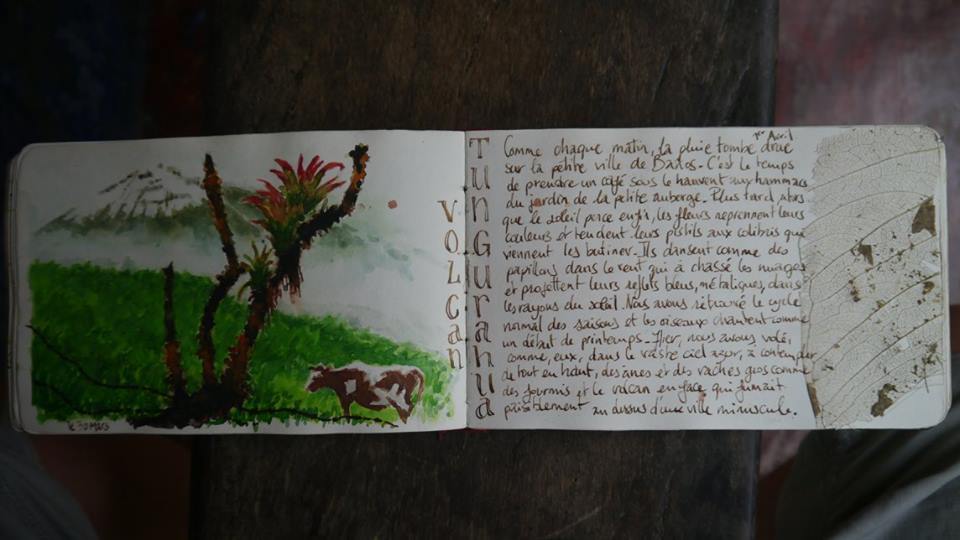 le 30 Mars
Volcan
Tungurahua
1er Avril
Comme chaque matin, la pluie tombe drue
sur la petite ville de Baños. C'est le temps
de prendre un café sous le hauvent aux hammacs
du jardin de la petite auberge. Plus tard, alors
que le soleil perce enfin, les fleurs reprennent leurs
couleurs et tendent leurs pistils aux colibris qui
viennent les butiner. Ils dansent comme des
papillons dans le vent qui a chassé les nuages
et projettent leurs reflets bleus, métaliques, dans
les rayons du soleil. Nous avons retrouvé le cycle
normal des saisons et les oiseaux chantent comme
un début de printemps. Hier, nous avons volé,
comme eux, dans le vaste ciel azur, à contempler
de tout en haut, des ânes et des vaches gros comme
des fourmis et le volcan en face qui fumait
paisiblement au dessus d'une ville minuscule.